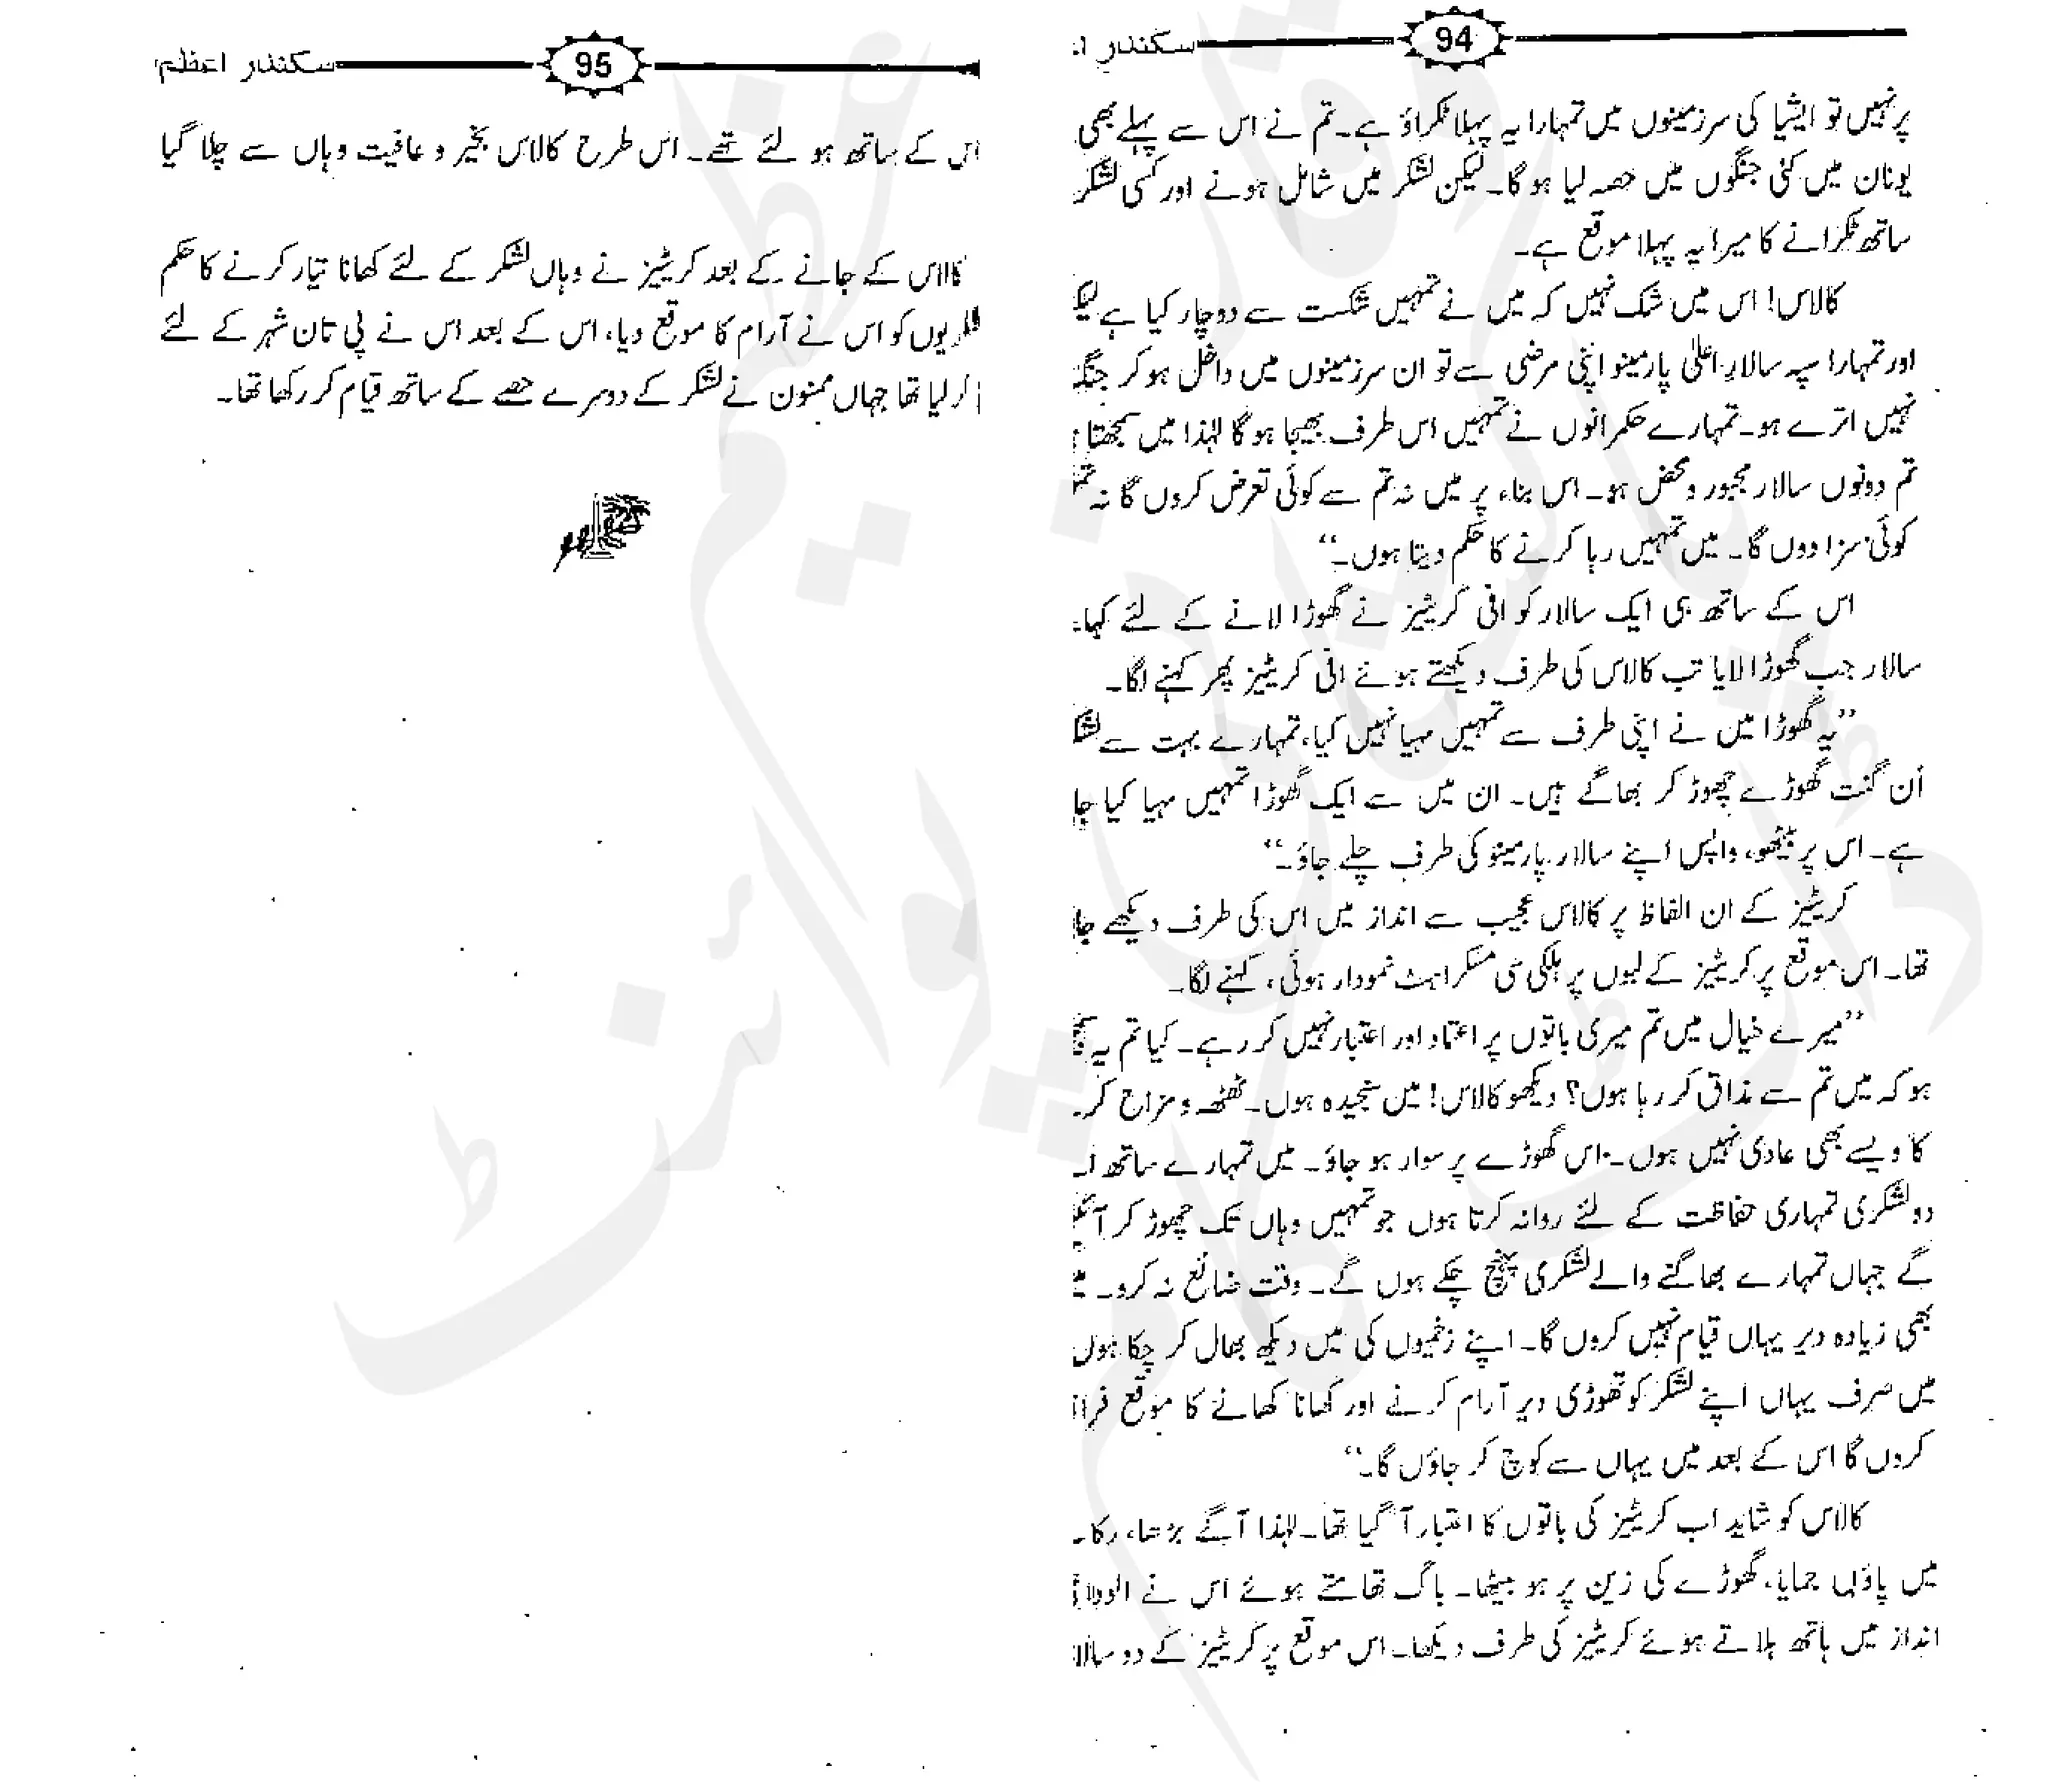 94
سکندرِ
پر نہیں تو ایشیا کی سرزمینوں میں تمہارا یہ پہلا ٹکراؤ ہے۔ تم نے اس سے پہلے بھی
یونان میں کئی جنگوں میں حصہ لیا ہو گا۔ لیکن لشکر میں شامل ہونے اور کسی لشکر
ساتھ ٹکرانے کا میرا یہ پہلا موقع ہے۔
کالاس! اس میں شک نہیں کہ میں نے تمہیں شکست سے دوچار کیا ہے
اور تمہارا سپہ سالارِ اعلیٰ پارمینو اپنی مرضی سے تو ان سرزمینوں میں داخل ہو کر
نہیں اترے ہو۔ تمہارے حکمرانوں نے تمہیں اس طرف بھیجا ہو گا لہٰذا میں سمجھتا
تم دونوں سالار مجبور محض ہو۔ اس بناء پر میں نہ تم سے کوئی تعرض کروں گا نہ
کوئی سزا دوں گا۔ میں تمہیں رہا کرنے کا حکم دیتا ہوں۔‘‘
اس کے ساتھ ہی ایک سالار کو انی کریٹیز نے گھوڑا لانے کے لئے کہا۔
سالار جب گھوڑا لایا تب کالاس کی طرف دیکھتے ہوئے انی کریٹیز پھر کہنے لگا۔
’’یہ گھوڑا میں نے اپنی طرف سے تمہیں مہیا نہیں کیا، تمہارے بہت سے
اَن گنت گھوڑے چھوڑ کر بھاگے ہیں۔ ان میں سے ایک گھوڑا تمہیں مہیا کیا جا
ہے۔ اس پر بیٹھو، واپس اپنے سالار پارمینو کی طرف چلے جاؤ۔‘‘
کریٹیز کے ان الفاظ پر کالاس عجیب سے انداز میں اس کی طرف دیکھے جا
تھا۔ اس موقع پر کریٹیز کے لبوں پر ہلکی سی مسکراہٹ نمودار ہوئی، کہنے لگا۔
’’میرے خیال میں تم میری باتوں پر اعتماد اور اعتبار نہیں کر رہے۔ کیا تم یہ
ہو کہ میں تم سے مذاق کر رہا ہوں؟ دیکھو کالاس! میں سنجیدہ ہوں۔ ٹھٹھہ و مزاح کر
کا ویسے بھی عادی نہیں ہوں۔ اس گھوڑے پر سوار ہو جاؤ۔ میں تمہارے ساتھ
دو لشکری تمہاری حفاظت کے لئے روانہ کرتا ہوں جو تمہیں وہاں تک چھوڑ کر
گے جہاں تمہارے بھاگنے والے لشکری پہنچ چکے ہوں گے۔ وقت ضائع نہ کرو۔
بھی زیادہ دیر یہاں قیام نہیں کروں گا۔ اپنے زخمیوں کی میں دیکھ بھال کر چکا ہوں
میں صرف یہاں اپنے لشکر کو تھوڑی دیر آرام کرنے اور کھانا کھانے کا موقع
کروں گا اس کے بعد میں یہاں سے کوچ کر جاؤں گا۔‘‘
کالاس کو شاید اب کریٹیز کی باتوں کا اعتبار آ گیا تھا۔ لہٰذا آگے بڑھا، رکا۔
میں پاؤں جمایا، گھوڑے کی زین پر ہو بیٹھا۔ باگ تھامتے ہوئے اس نے
انداز میں ہاتھ ہلاتے ہوئے کریٹیز کی طرف دیکھا۔ اس موقع پر کریٹیز کے دو
95
سکندرِ اعظم
اس کے ساتھ ہو لئے تھے۔ اس طرح کالاس بخیر و عافیت وہاں سے چلا گیا
کالاس کے جانے کے بعد کریٹیز نے وہاں لشکر کے لئے کھانا تیار کرنے کا حکم
کو اس نے آرام کا موقع دیا، اس کے بعد اس نے پی تان شہر کے لئے
کر لیا تھا جہاں ممنون نے لشکر کے دوسرے حصے کے ساتھ قیام کر رکھا تھا۔